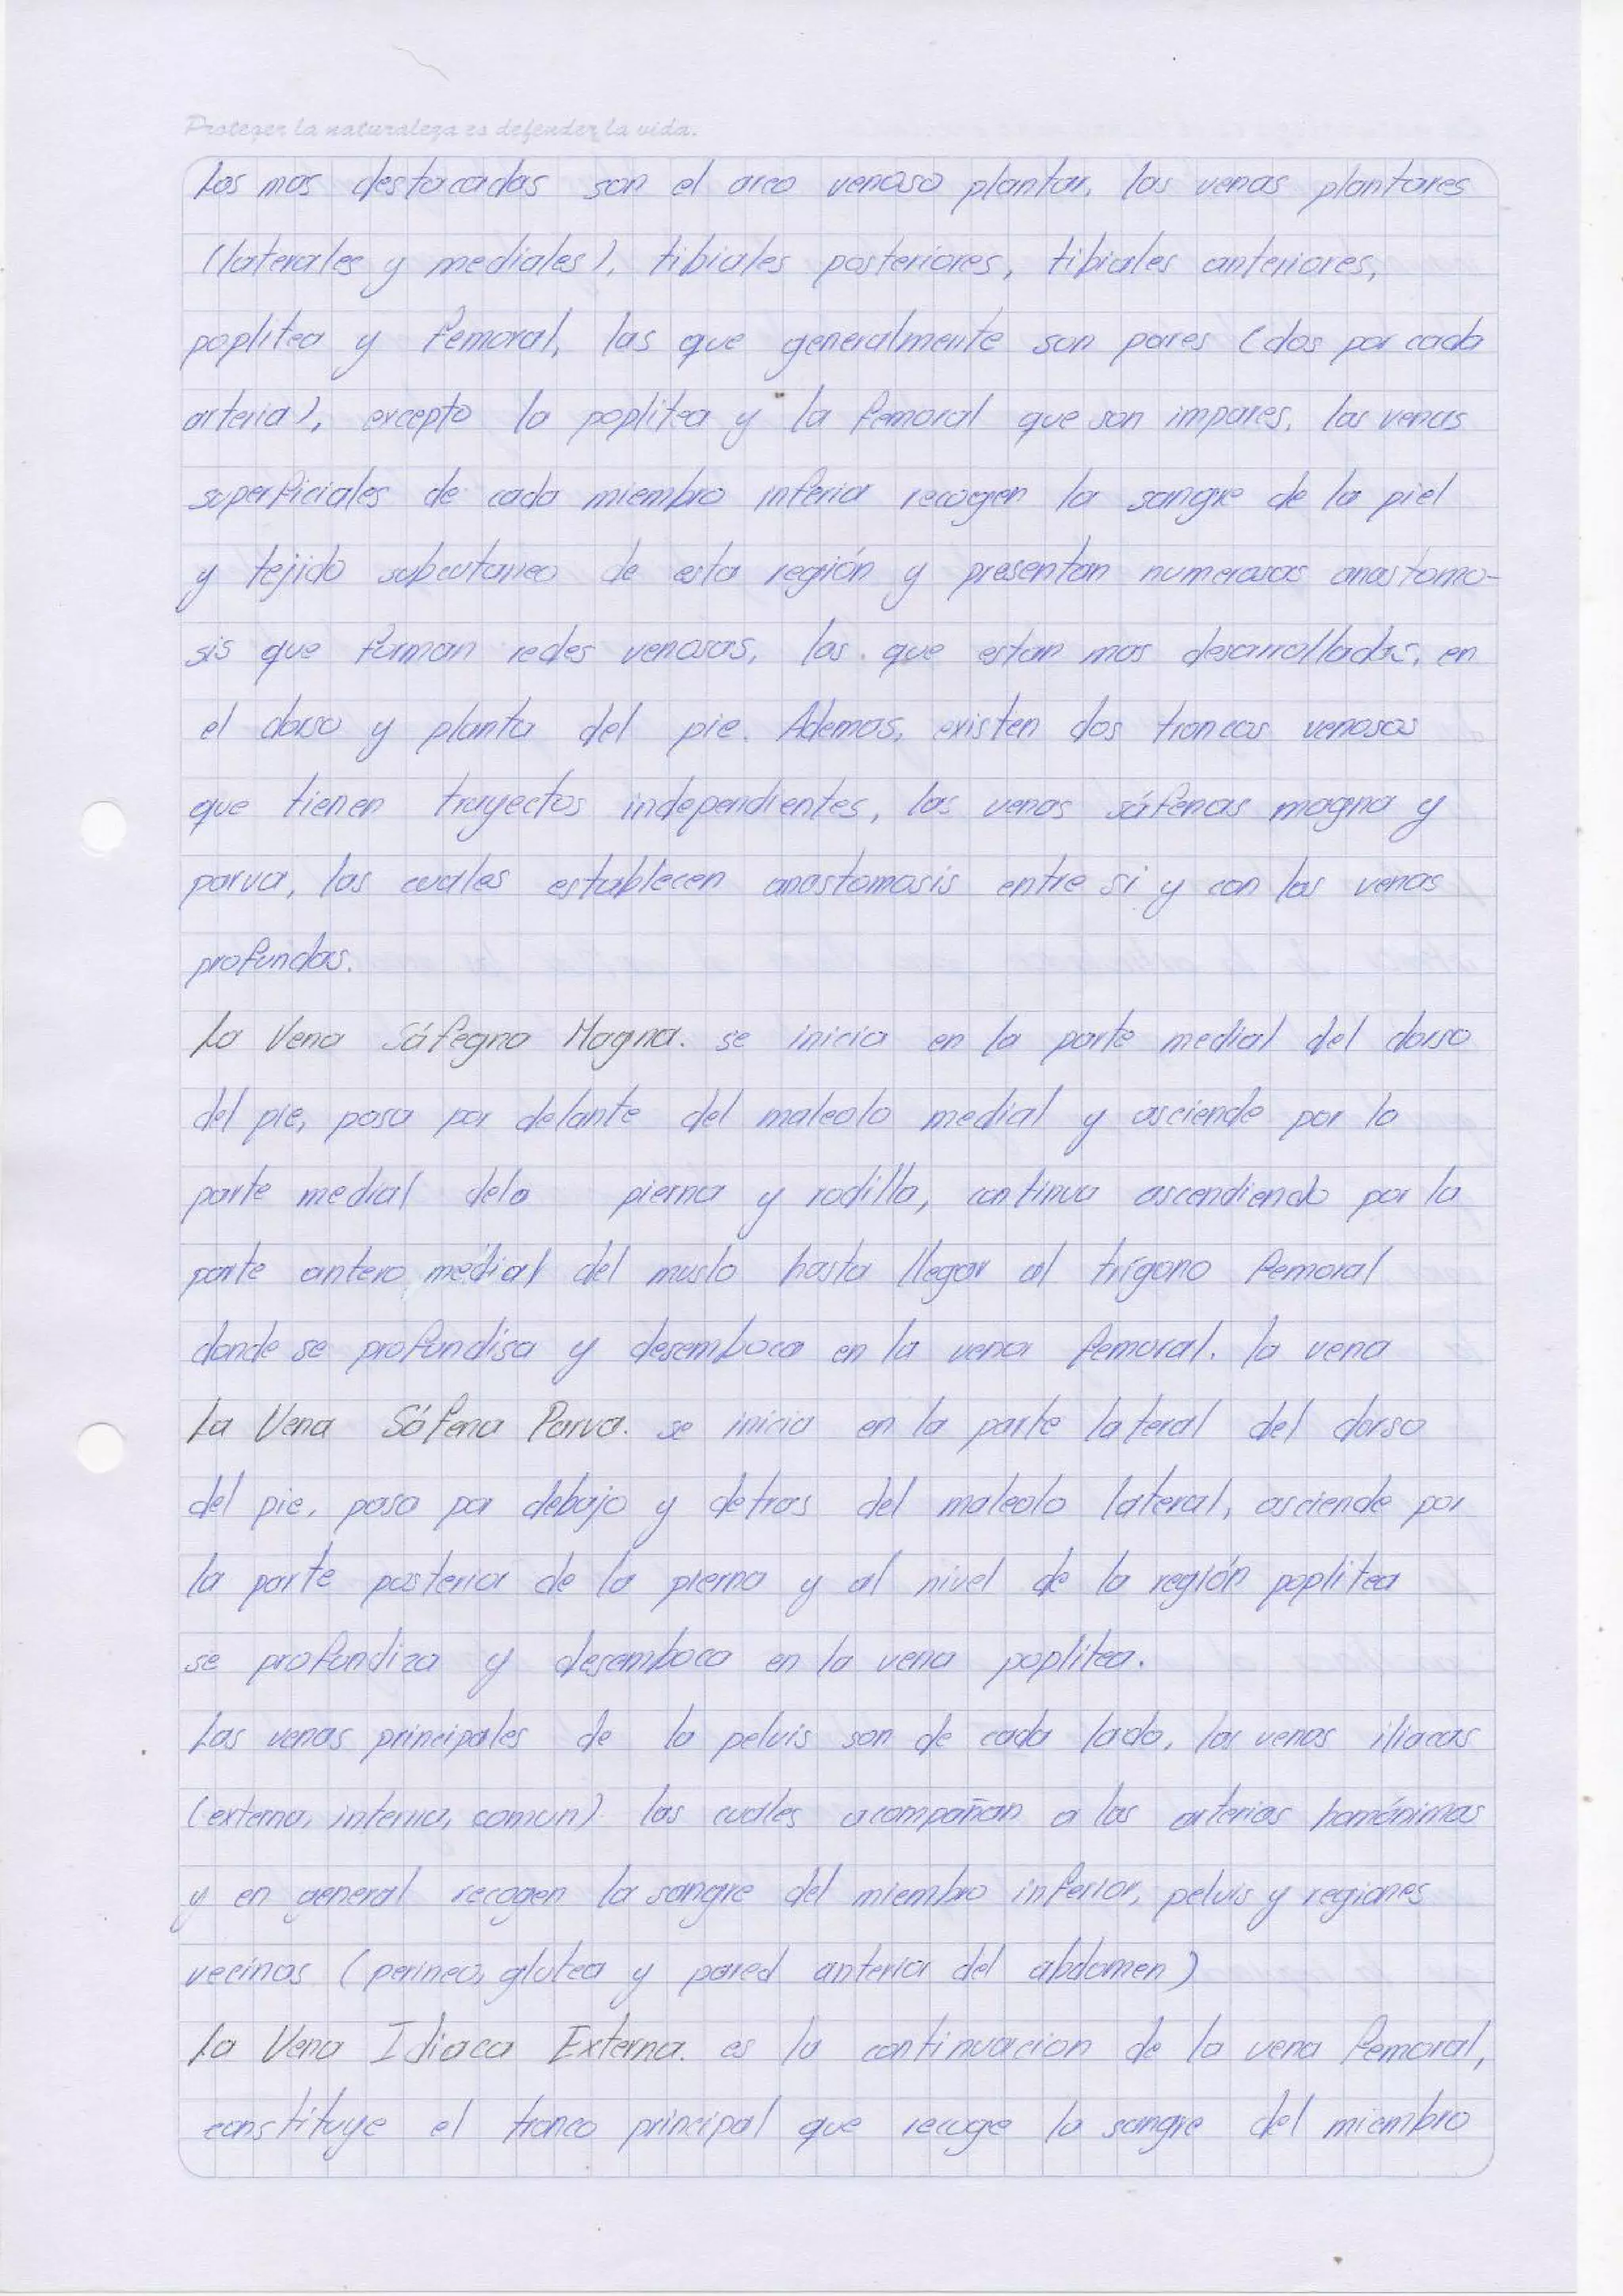 Proteger la naturaleza es defender la vida.
Las mas destacadas son el arco venoso plantar, las venas plantares
(laterales y mediales), tibiales posteriores, tibiales anteriores,
poplitea y femoral, las que generalmente son pares (dos por cada
arteria), excepto la poplitea y la femoral que son impares. las venas
superficiales de cada miembro inferior recogen la sangre de la piel
y tejido subcutaneo de esta región y presentan numerosas anastomo-
sis que forman redes venosas, las que estan mas desarrolladas, en
el dorso y planta del pie. Ademas, existen dos troncos venosos
que tienen trayectos independientes, las venas sáfenas magna y
parva, las cuales establecen anastomosis entre si y con las venas
profundas.
La Vena Sáfegna Magna. se inicia en la parte medial del dorso
del pie, pasa por delante del maleolo medial y asciende por la
parte medial dela pierna y rodilla, continua ascendiendo por la
parte antero medial del muslo hasta llegar al trígono femoral
donde se profundisa y desemboca en la vena femoral. la vena
La Vena Sáfena Parva. se inicia en la parte lateral del dorso
del pie, pasa por debajo y detras del maleolo lateral, asciende por
la parte posterior de la pierna y al nivel de la región poplitea
se profundiza y desemboca en la vena poplítea.
Las venas principales de la pelvis son de cada lado, las venas iliacas
(externa, interna, comun) las cuales acompañan a las arterias homónimas
y en general recogen la sangre del miembro inferior, pelvis y regiones
vecinas (perineo, glutea y pared anterior del abdomen)
La Vena Idiaca Externa. es la continuacion de la vena femoral,
constituye el tronco principal que recoge la sangre del miembro